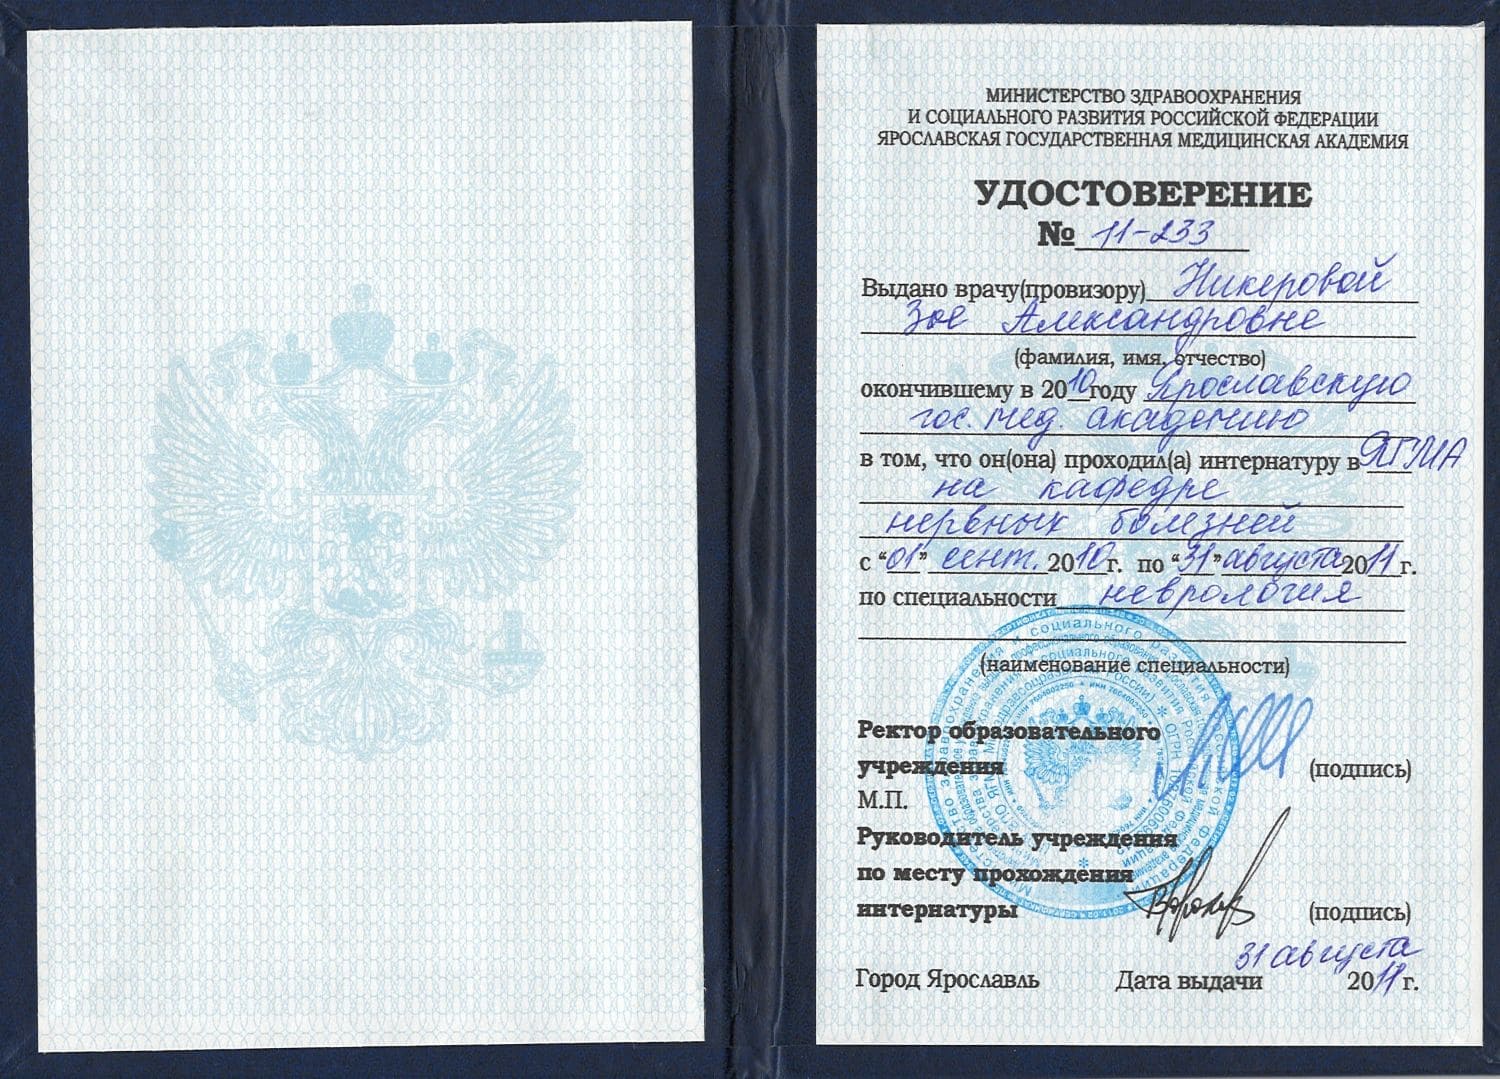 МИНИСТЕРСТВО ЗДРАВООХРАНЕНИЯ
И СОЦИАЛЬНОГО РАЗВИТИЯ РОССИЙСКОЙ ФЕДЕРАЦИИ
ЯРОСЛАВСКАЯ ГОСУДАРСТВЕННАЯ МЕДИЦИНСКАЯ АКАДЕМИЯ
УДОСТОВЕРЕНИЕ
№ 11-233
Выдано врачу(провизору) Никеровой
Зое Александровне
(фамилия, имя, отчество)
окончившему в 2010 году Ярославскую
гос. мед. академию
в том, что он(она) проходил(а) интернатуру в ЯГМА
на кафедре
нервных болезней
с “01” сент. 2010 г. по “31” августа 2011 г.
по специальности неврология
(наименование специальности)
Ректор образовательного
учреждения (подпись)
М.П.
Руководитель учреждения
по месту прохождения
интернатуры (подпись)
31 августа
Город Ярославль Дата выдачи 2011 г.